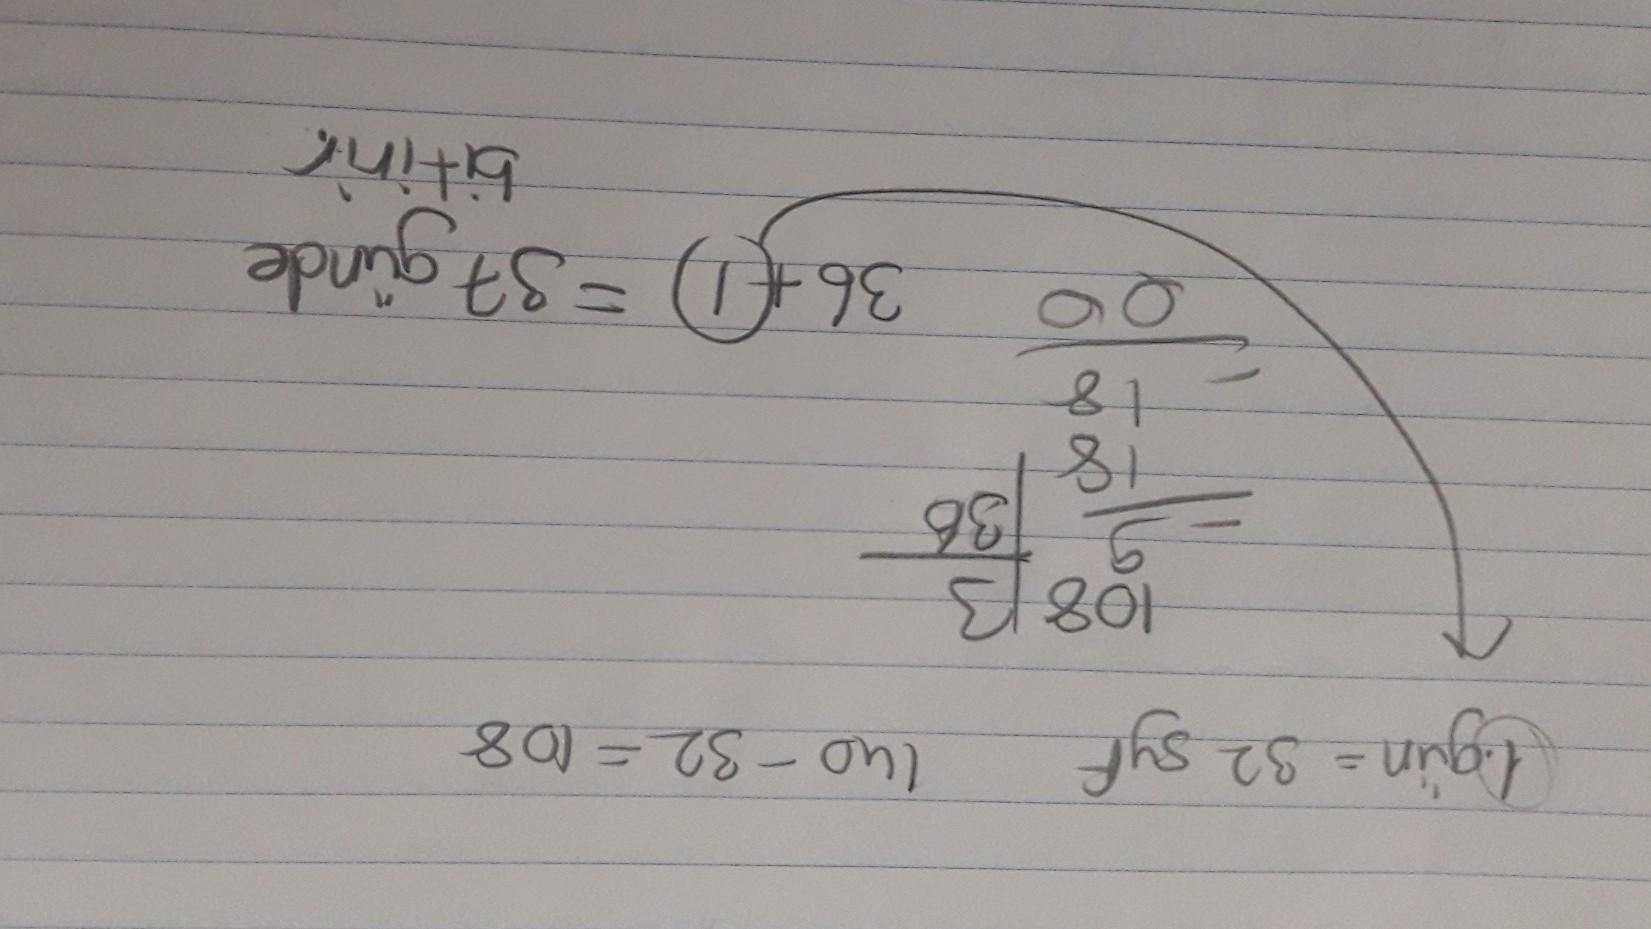 1.gün = 32 syf 140 - 32 = 108
108 3
9 36
18
18
00 36 + 1 = 37 günde
bitirir